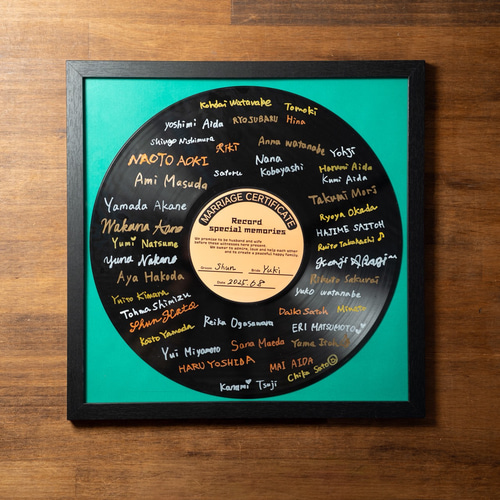 Kohdai Watanabe
Tomoki
yoshimi Aida
RYOJUBARU
Hina
Shingo Nishimura
Anna watanabe
Yohji
NAOTO AOKI
Satoru
Nana
Kobayashi
Harumi Aida
Kumi Aida
Ami Masuda
Takumi Mori
Yamada Akane
Ryoya Okada
Wakana
HAJIME SAITOH
Yumi Natsume
Yuna Nakano
Aya Hakoda
Rikuto Sakurai
yuko watanabe
Tohma Shimizu
Kaito Yamada
Reika Ogasawara
ERI MATSUMOTO
Yui Miyamoto
Sara Maeda
HARU YOSHIDA
MAI AIDA
Chika Sato
Kanami Tsuji
MARRIAGE CERTIFICATE
Record
special memories
We promise to be husband and wife
before these witnesses here present.
We swear to admire, love and help each other
and to create a peaceful happy family.
Groom Shun Bride Yuki
Date 2025.08